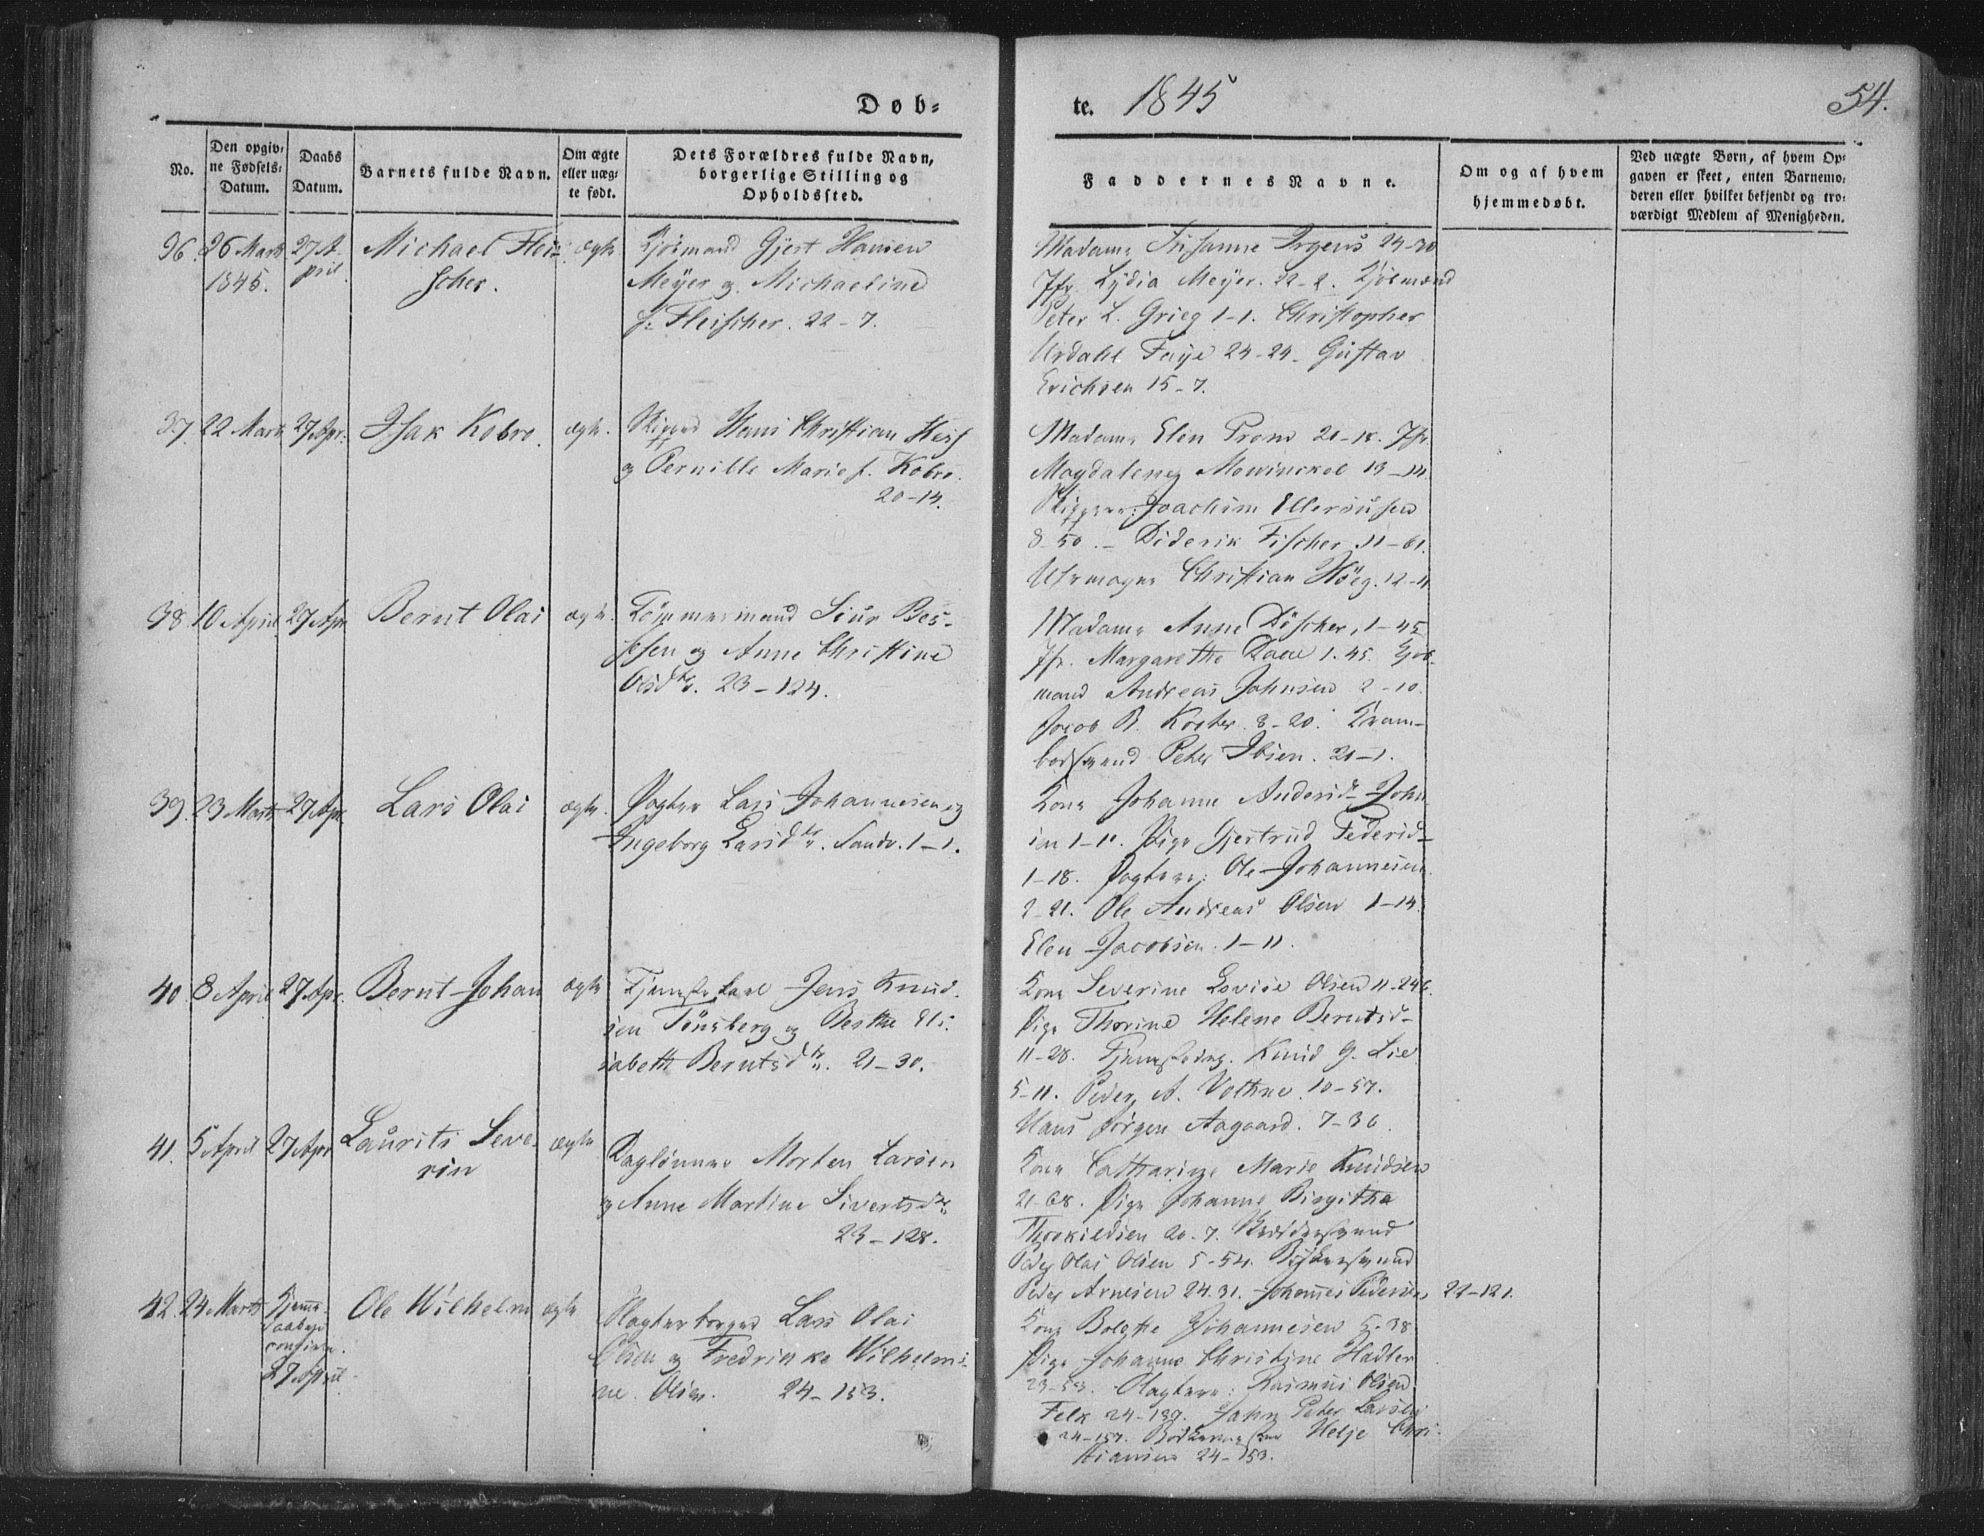 Døb=
te. 1845
54.
No.
Den opgiv=
ne Fødsels=
Datum.
Daabs
Datum.
Barnets fulde Navn.
Om ægte
eller uæg=
te født.
Dets Forældres fulde Navn,
borgerlige Stilling og
Opholdssted.
Faddernes Navne.
Om og af hvem
hjemmedøbt.
Ved uægte Børn, af hvem Op=
gaven er skeet, enten Barnemo=
deren eller hvilket bekjendt og tro=
værdigt Medlem af Menigheden.
36. 26 Marts 27 A- Michael Flei- ægte Kjøbmand Gjert Hansen
1845. pril scher. Meyer og Michaeline
f. Fleischer. 22-7.
Madame Susanne Irgens 24-20
Jfr. Lydia Meyer. 22-2. Kjøbmænd
Peter L. Grieg 1-1. Christopher
Urdahl Faye 24-24. Gustav
Erichsen 15-7.
37. 22 Marts 27 Apr. Isak Kobro. ægte. Skipper Hans Christian Hess
og Pernille Marie f. Kobro.
20-14.
Madame Elen Prom 21-18. Jfr.
Magdalene Mowinckel 13-14.
Skippere: Joachim Ellerhusen
8-50. - Diderik Fischer. 11-61.
Uhrmager Christian Höeg. 12-11
38. 10 April 27 Apr. Bernt Olai ægte. Tømmermand Siur Bes-
sesen og Anne Christine
Olsdtr. 23-124.
Madame Anne Döscher, 1-45
Jfr. Margarethe Daae 1.45. Kjøb-
mand Andreas Johnsen 2-10.
Jacob B. Koster. 8-20. Kram-
bodsvend Peter Ibsen. 21-1.
39. 23 Marts 27 Apr. Lars Olai ægte. Pagter Lars Johannesen og
Ingeborg Larsdtr. Sandv. 1-1.
Kone Johanne Andersd- John-
sen 1-11. Pige Gjertrud Pedersd-
1-18. Pagtere: Ole Johannesen
2-21. Ole Andreas Olsen 1-14.
Elen Jacobsen. 1-11.
40 8 April 27 Apr. Bernt Johan ægte Tjenestekarl Jens Knud-
sen Tönsberg og Berthe Eli-
sabeth Berntsdtr. 21-30.
Kone Severine Lovise Olsen 11-246.
Pige Thorine Helene Berntsd-
11-28. Tjenestedreng. Knud G. Lie
5-11. Peder A. Vothne. 10-57.
Hans Jörgen Aagaard. 7-36.
41. 5 April 27 Apr. Laurits Seve- ægte Daglønner Morten Larsen
rin og Anne Martine Sivertsdtr.
23-128.
Kone Catharine Marie Knudsen
21-68. Pige Johanne Birgitha
Thorkildsen 20-7. Skræddersvend
Peder Olai Olsen 5-54. Bødkersvend
Peder Arnesen 24.31. Johannes Pedersen 22-121.
42. 24 Marts Hjemme- Ole Wilhelm ægte Slagterborger Lars Olai
daaben
27 April. Olsen og Fredrikke Wilhelmi-
ne Olsen. 24-153.
Kone Bolethe Johannesen 5-38
Pige Johanne Christine Hadler
23-53. Slagtere: Rasmus Olsen
Felk 24-137. John Peter Larsen
24-157. Bødkermester Helje Chri-
stiansen 24-153.